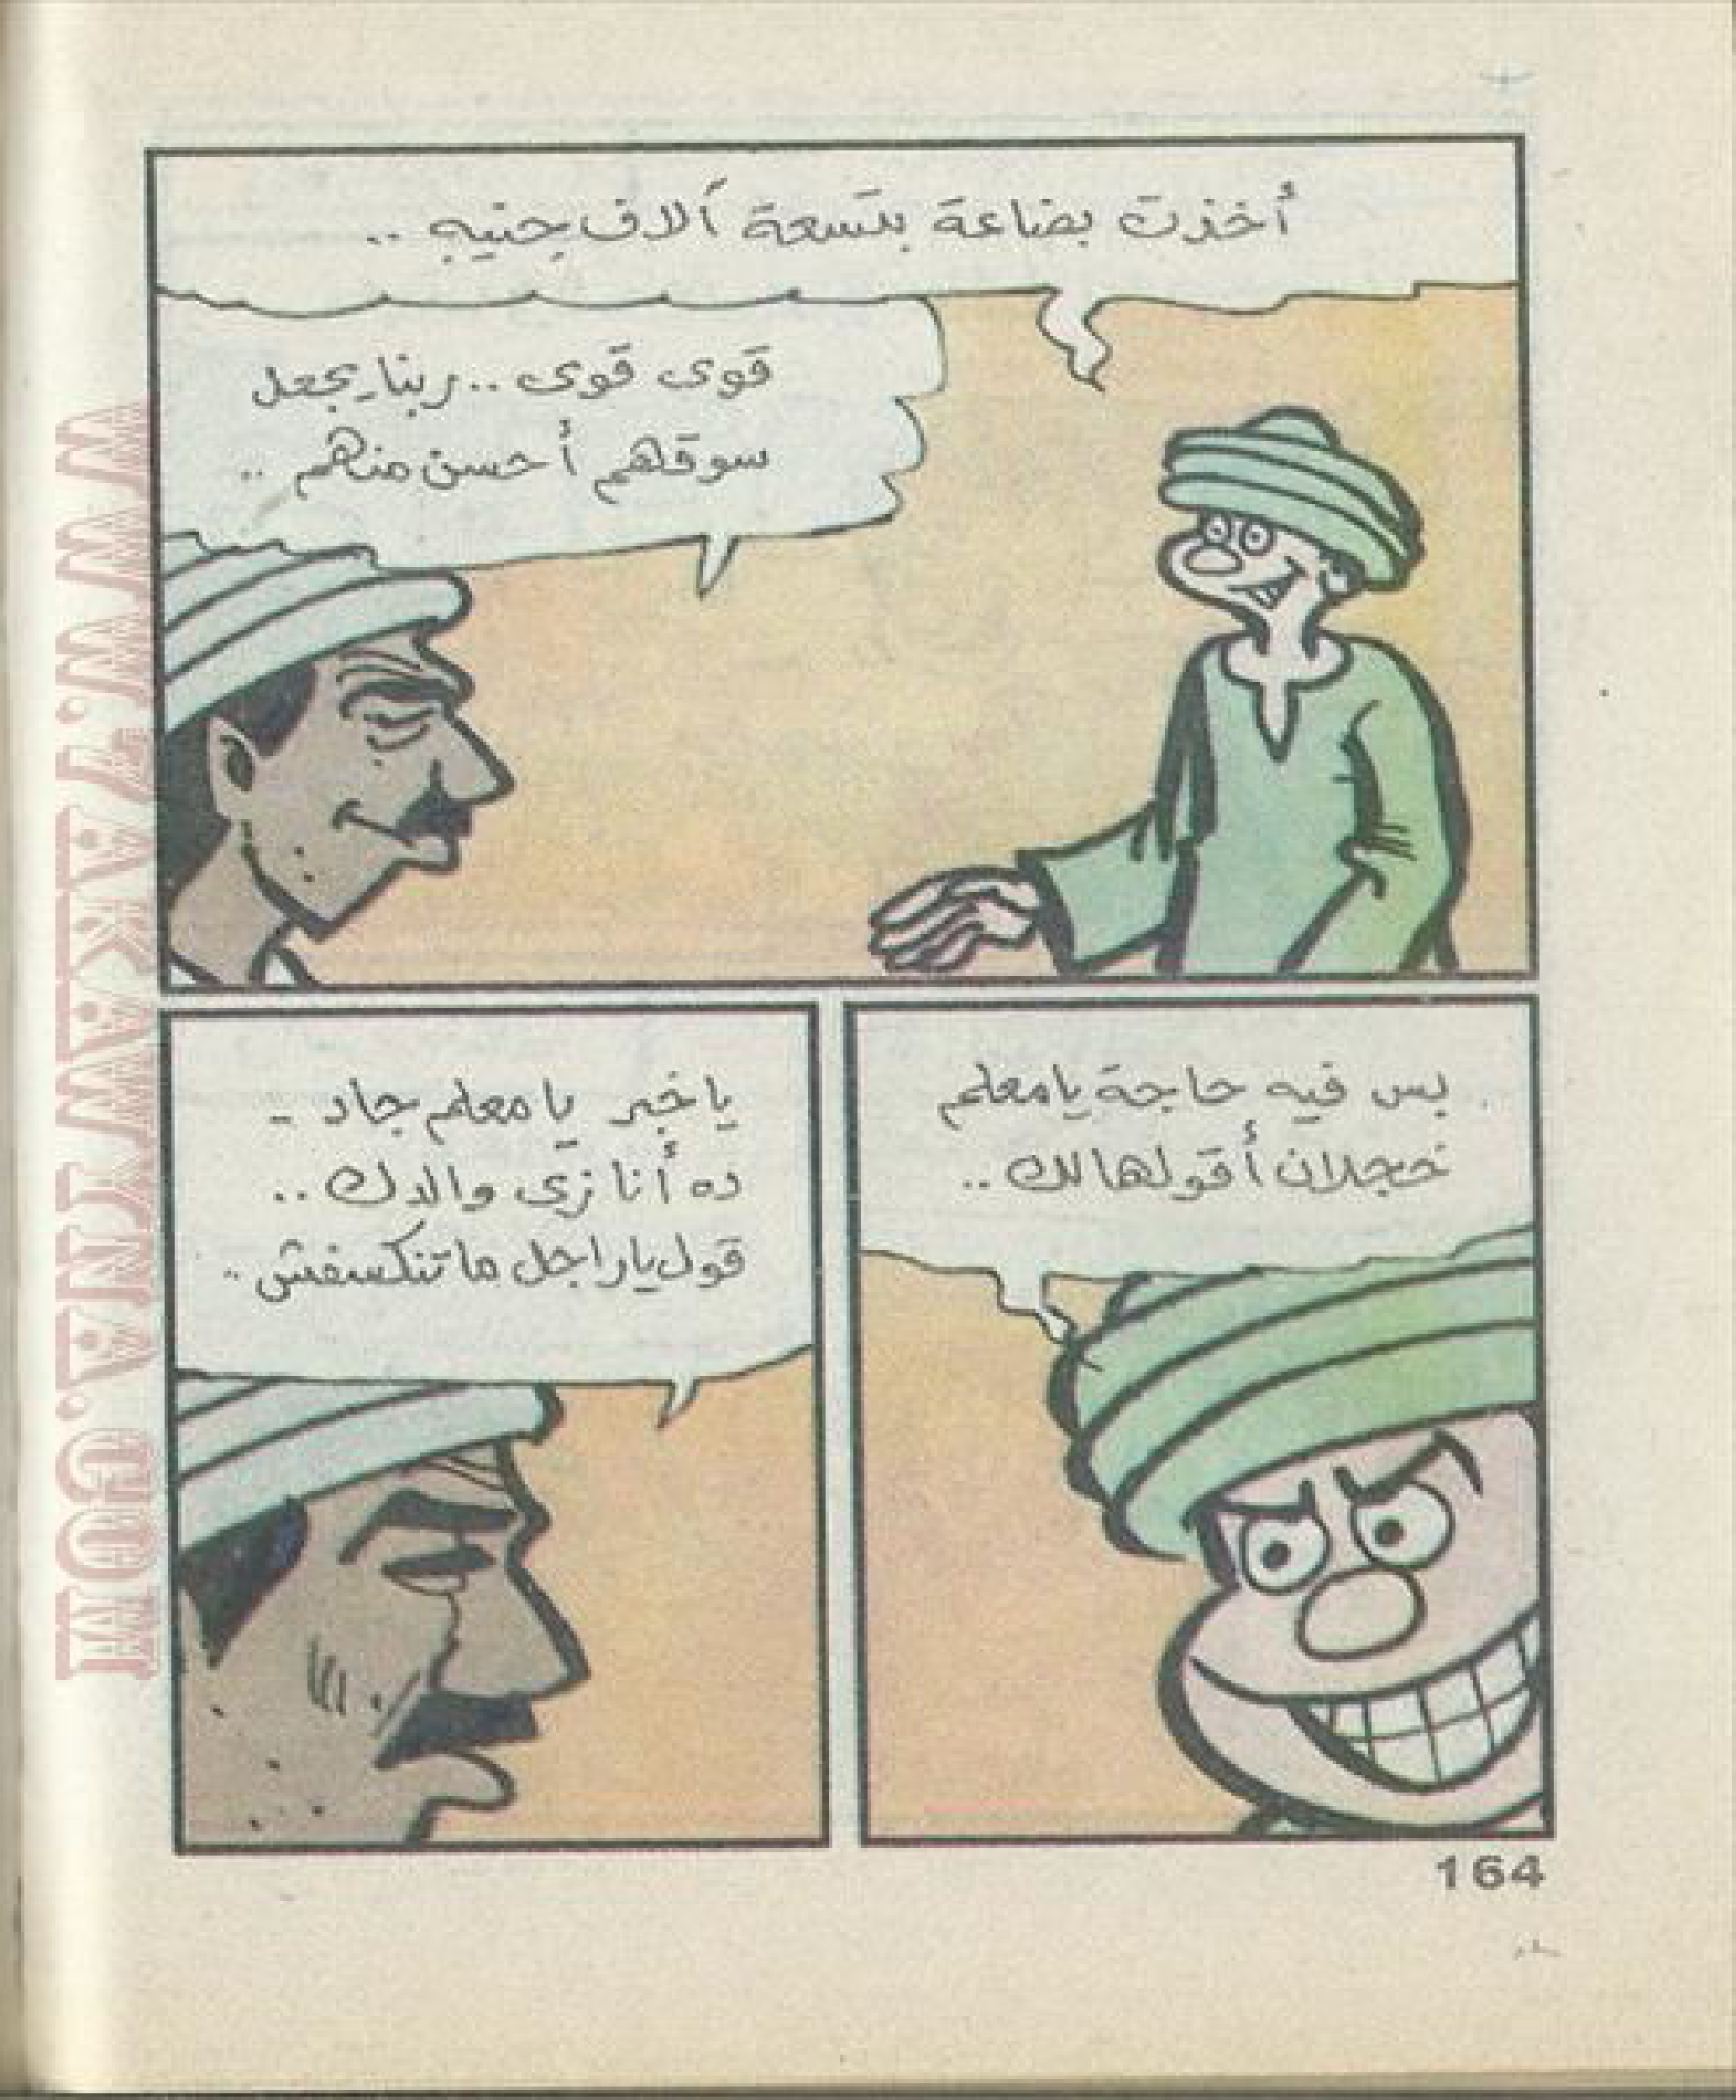 أخذت بضاعة بتسعة ألاف جنيه ..
قوى قوى .. ربنا يجعل
سوقهم أحسن منهم ..
بس فيه حاجة يا معلم
خجلان أقولها لك ..
يا خبر يا معلم جاد -
ده أنا زى والدك ..
قول يا راجل ما تنكسفش ..
164
WWW.TAKAWTNA.COM